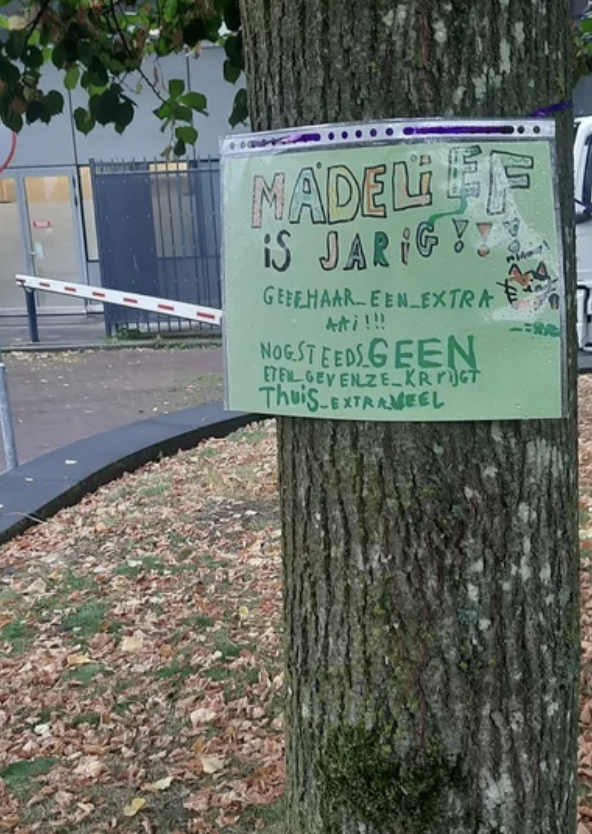 MADELIEF
iS JARiG!!!
GEEF HAAR_EEN_EXTRA
AAi!!!
NOG_STEEDS_GEEN
ETEN_GEVEN_ZE_KRRIJGT
THUiS_EXTRA_VEEL